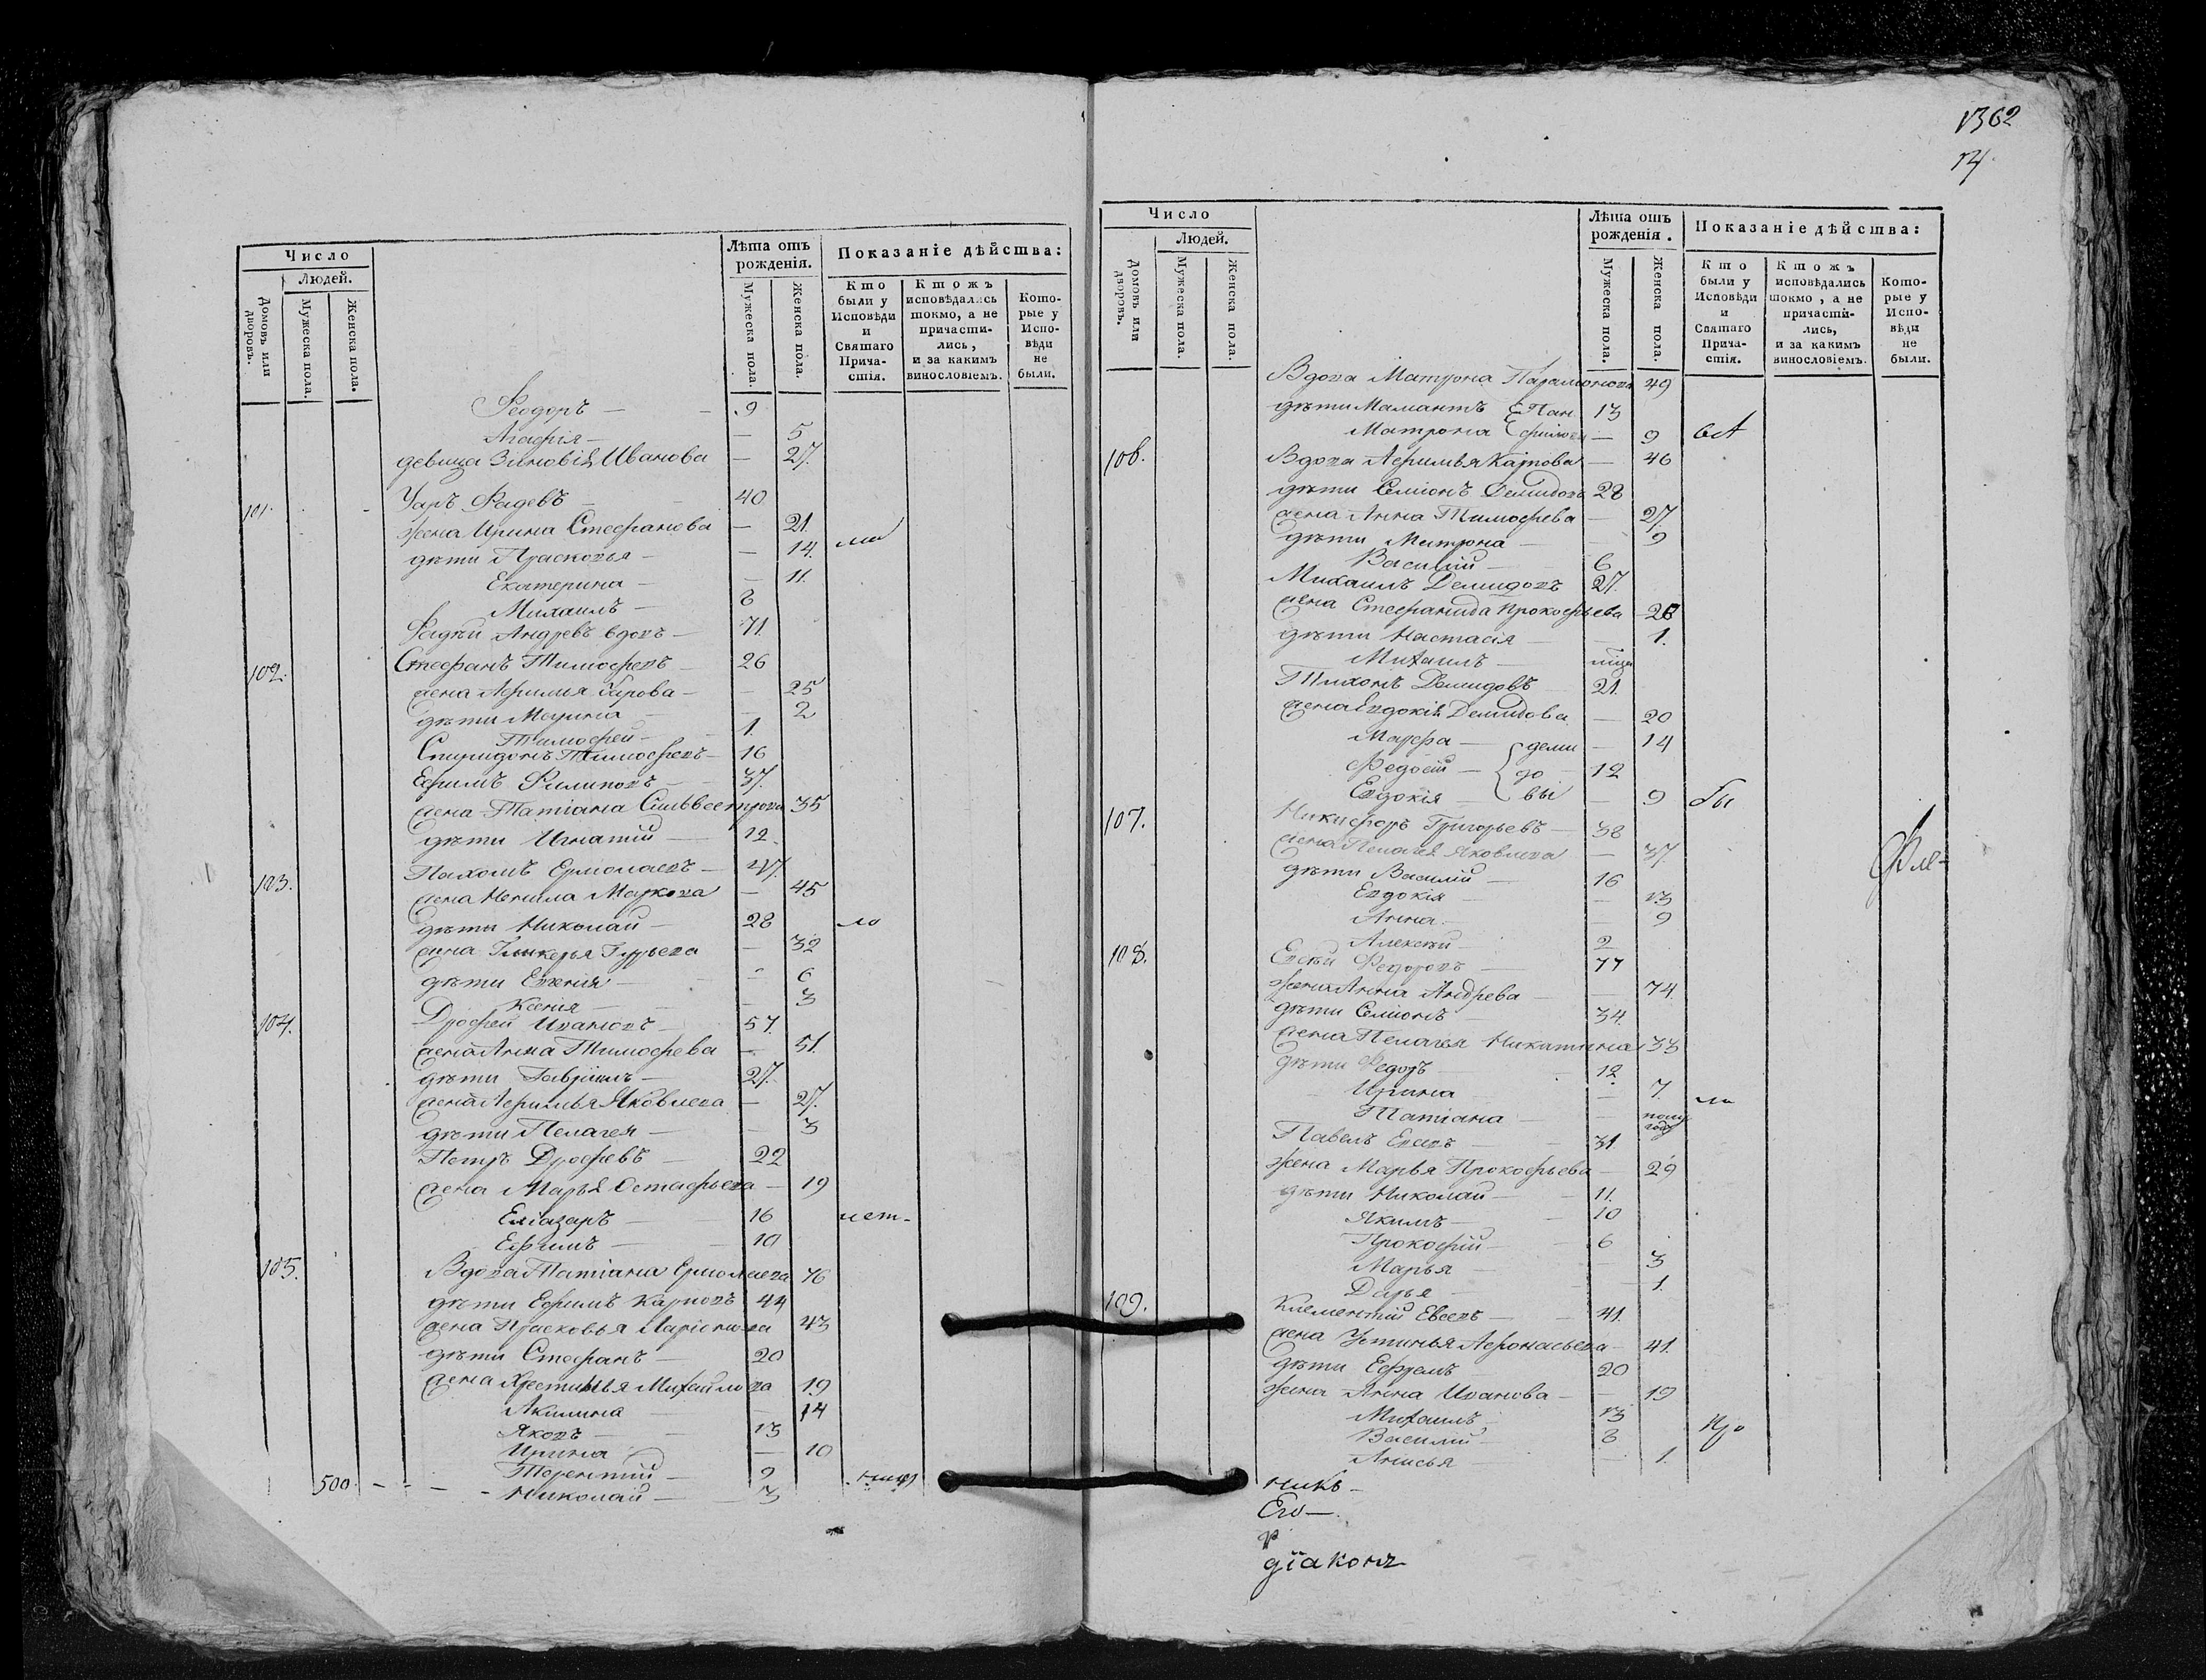 1362
14
Число
Людей.
Домовъ или дворовъ.
Мужеска пола.
Женска пола.
Лѣта отъ рожденія.
Мужеска пола.
Женска пола.
Показаніе дѣйства:
Кто были у Исповѣди и Святаго Причастія.
Ктожъ исповѣдались токмо, а не причастились, и за какимъ винословіемъ.
Которые у Исповѣди не были.
Феодоръ — 9
Агафія — 5
девица Зиновія Иванова — 27.
101. Уаръ Фадевъ 40
жена Ирина Стефанова — 21.
дѣти Прасковья — 14. ли
Екатерина — 11.
Михаилъ — 8
Фадѣй Андревъ вдовъ — 71
102. Стефанъ Тимофевъ — 26
жена Афимья Уарова — 25
дѣти Марина — 2
Тимофей — 1.
Спиридонъ Тимофевъ — 16
Ефимъ Филиповъ — 37.
жена Татіана Сильвестрова 35
дѣти Игнатій — 12.
103. Пахомъ Ермолаевъ — 47.
жена Ненила Маркова — 45
дѣти Николай — 28 ло
жена Гликерья Гурьева — 32
дѣти Евгенія — 6
Ксенія — 3
104. Дрофей Ивановъ — 57.
жена Анна Тимофева — 51.
дѣти Гавріилъ — 27.
жена Афимья Яковлева — 27.
дѣти Пелагея — 3
Петръ Дрофевъ — 22
жена Марья Остафьева — 19
Еліазаръ — 16 лет-
Ефимъ — 10
105. Вдова Татіана Ермолаева 76
дѣти Ефимъ Карповъ 44
жена Прасковья Ларіонова 43
дѣти Стефанъ — 20
жена Хрестинья Михайлова 19
Акилина — 14
Яковъ — 13
Ирина — 10
Терентій — 9
500. - - - - Николай — 3
Число
Людей.
Домовъ или дворовъ.
Мужеска пола.
Женска пола.
Лѣта отъ рожденія.
Мужеска пола.
Женска пола.
Показаніе дѣйства:
Кто были у Исповѣди и Святаго Причастія.
Ктожъ исповѣдались токмо, а не причастились, и за какимъ винословіемъ.
Которые у Исповѣди не были.
Вдова Матрона Парамонова 49
дѣти Мамантъ 13
Матрона — 9
106. Вдова Афимья Карпова — 46
дѣти Семіонъ Демидовъ 28
жена Анна Тимофева — 27.
дѣти Матрона — 9
Василій — 6
Михаилъ Демидовъ 27.
жена Стефанида Прокофьева 26
дѣти Настасія — 1.
Михаилъ —
Тихонъ Демидовъ 21.
жена Евдокія Демидова — 20
Марфа — деми — 14
Федосій — до — 12
Евдокія — вы — 9 бы
107. Никифоръ Григорьевъ — 38
жена Пелагея Яковлева — 37.
дѣти Василій — 16
Евдокія — 13
Анна — 9
Алексѣй — 2
108. Евсѣй Федоровъ — 77
жена Анна Андрева — 74.
дѣти Семіонъ — 34.
жена Пелагея Никитина 33
дѣти Федоръ — 12
Ирина — 7. ли
Татіана — полу году
Павелъ Евсевъ — 31
жена Марья Прокофьева — 29
дѣти Николай — 11.
Якимъ — 10
Прокофій — 6
Марья — 3
Дарья — 1.
109. Клементій Евсевъ — 41.
жена Устинья Афонасьева — 41.
дѣти Ефремъ — 20
жена Анна Иванова — 19
Михаилъ — 13
Василій — 8
Анисья — 1.
никъ —
Его —
р
діаконъ